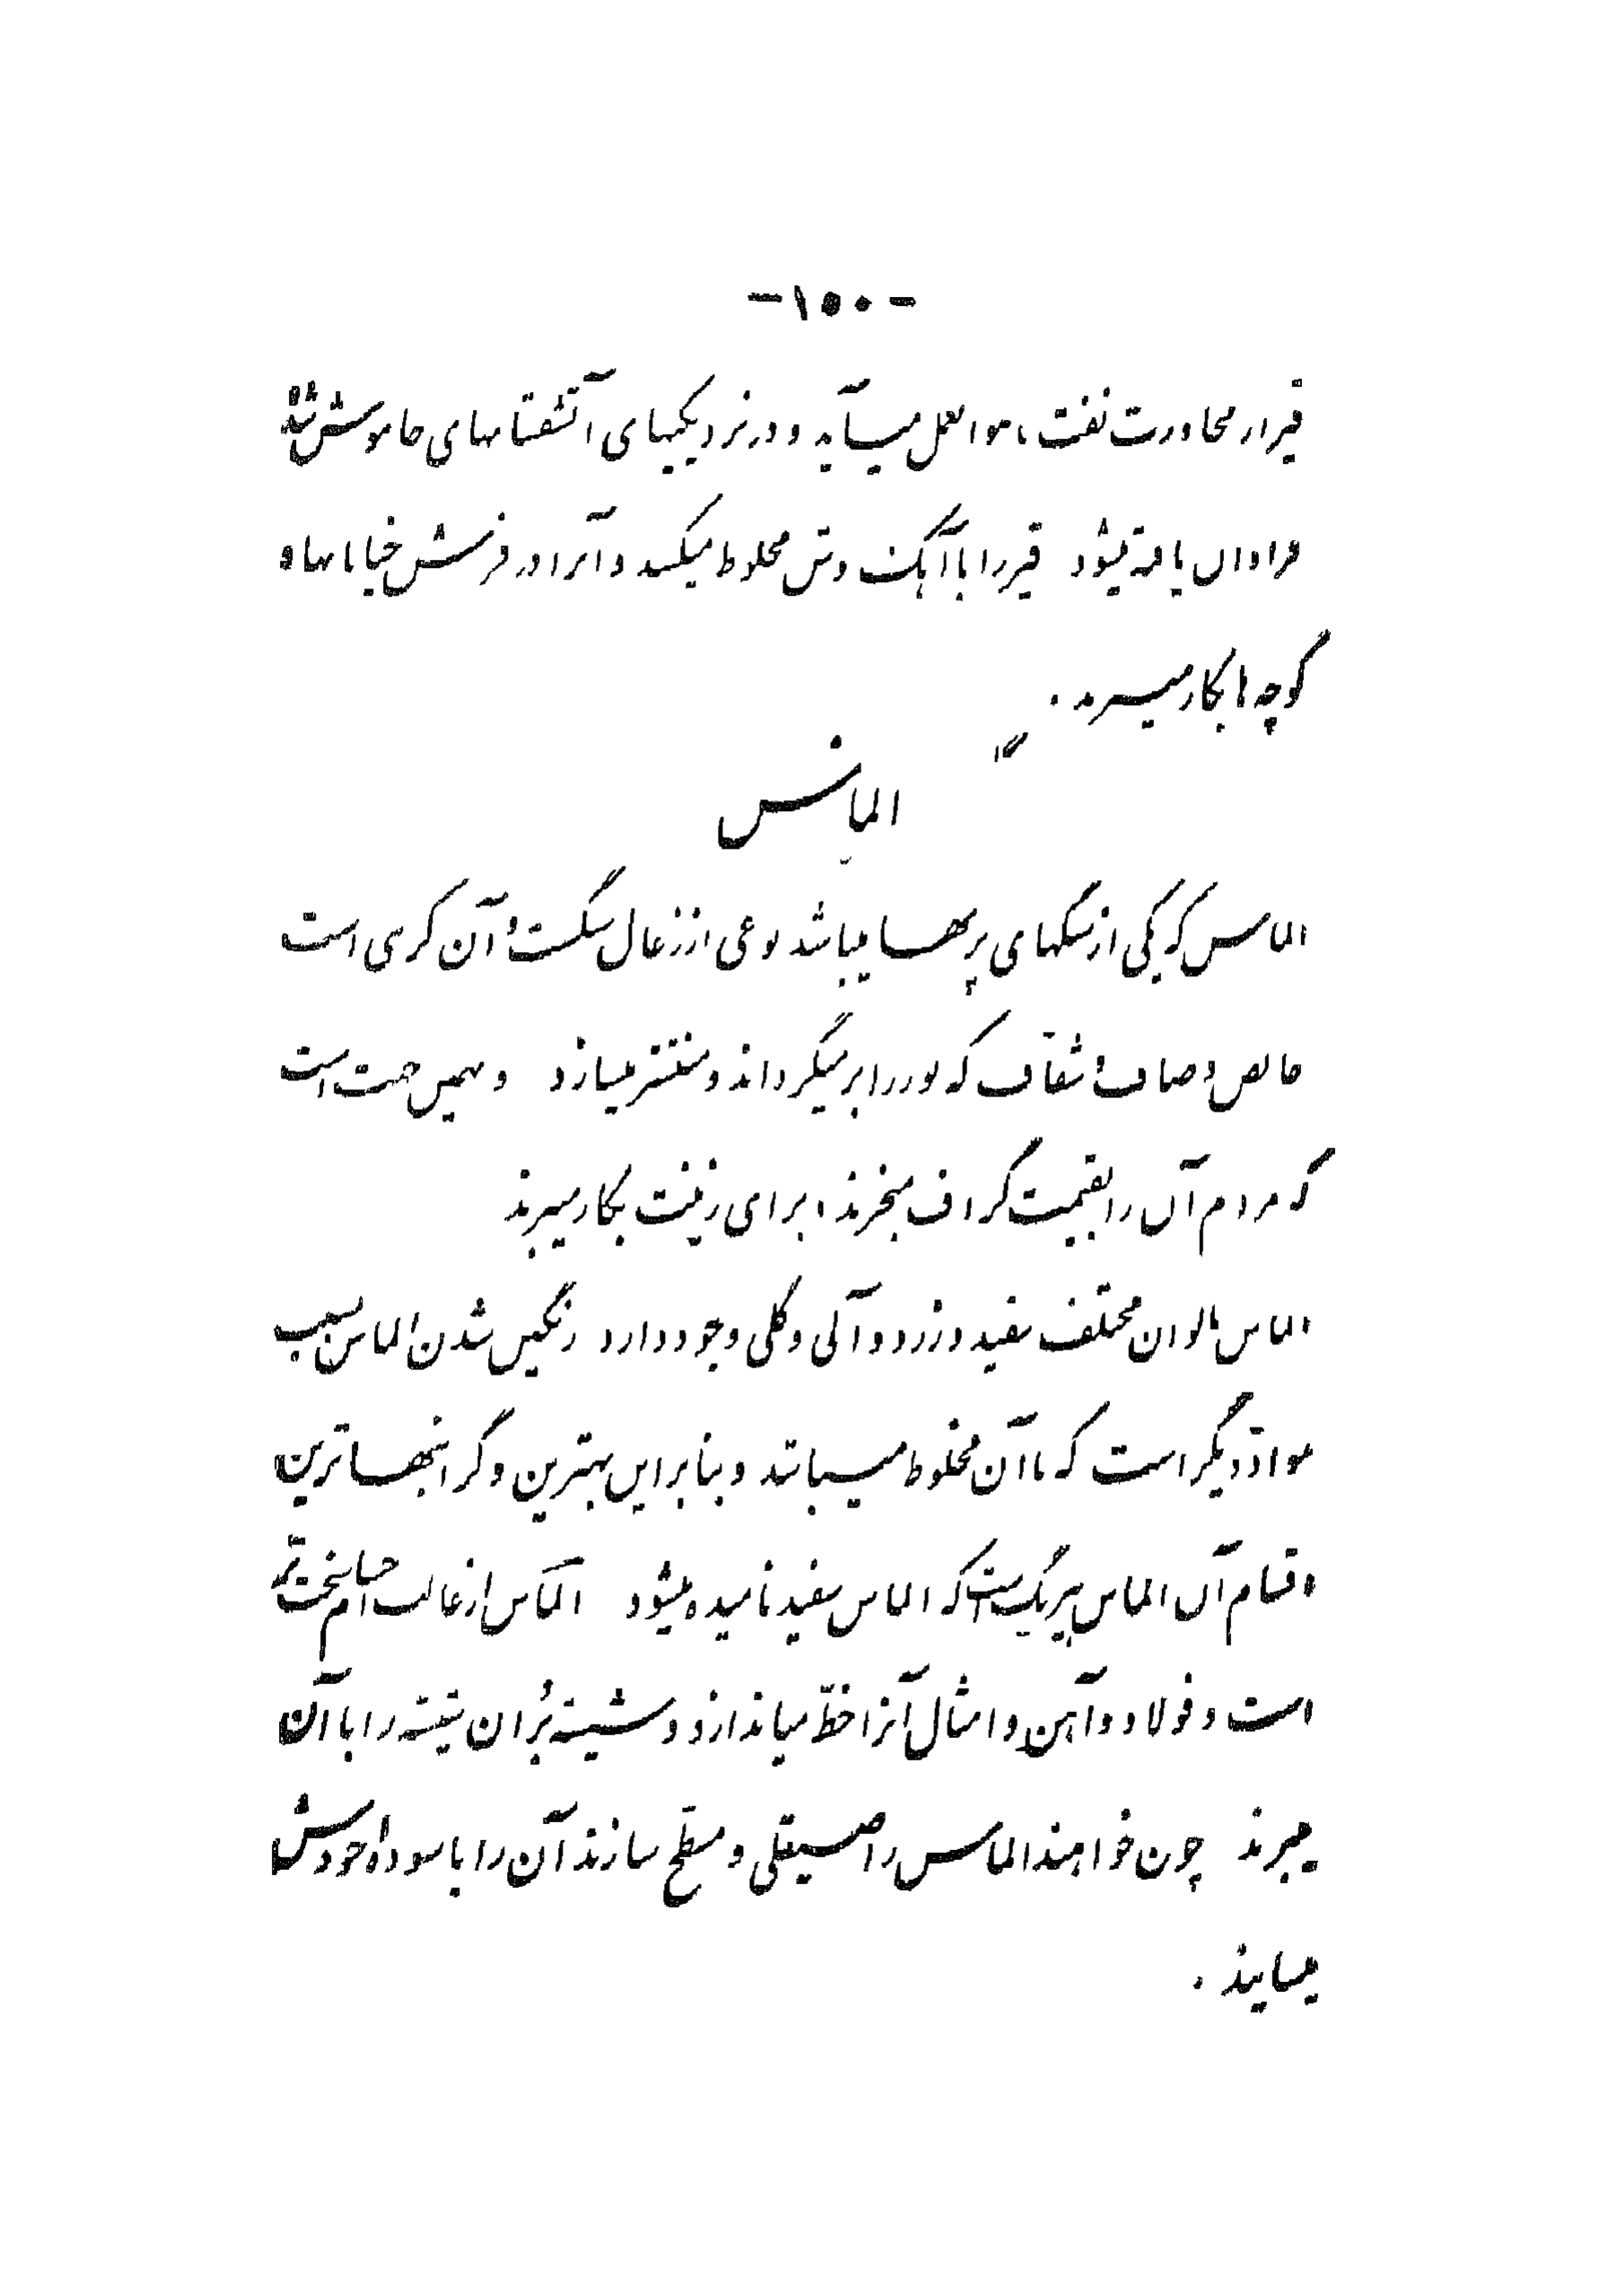 -۱۵۰-
قیر از مجاورت نفت با هوا بعمل میآید و در نزدیکیهای آتشفشانهای خاموش شده
فراوان یافته میشود قیر را با آهک و شن مخلوط میکنند و آنرا در فرش خیابانها و
کوچه‌ها بکار میبرند .
الماس
الماس که یکی از سنگهای پر بها میباشد نوعی از زغال سنگست و آن کربنی است
خالص و صاف و شفاف که نور را بر میگرداند و منتشر میسازد و بهمین جهت است
که مردم آن را بقیمت گزاف میخرند و برای زینت بکار میبرند
الماس بالوان مختلف سفید و زرد و آبی و گلی وجود دارد رنگین شدن الماس بسبب
مواد دیگر است که با آن مخلوط میباشد و بنابراین بهترین و گرانبهاترین
اقسام آن الماس بیرنگ است که الماس سفید نامیده میشود الماس از غالب اجسام سخت تر
است و فولاد و آهن و امثال آنرا خطّ میاندازد و شیشه بُران شیشه را با آن
میبرند چون خواهند الماس را صیقلی و مسطّح سازند آن را با سوده خودش
میسایند .